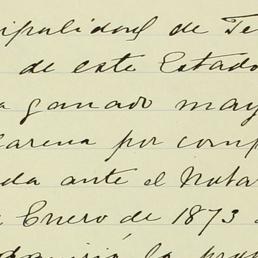 ipalidad de Te
de este Estado
a ganado may
larena por comp
da ante el Nota
e Enero de 1873